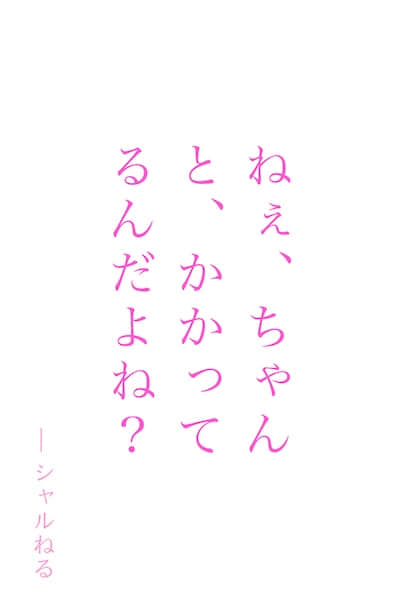 ねぇ、ちゃん
と、かかって
るんだよね？
―シャルねる